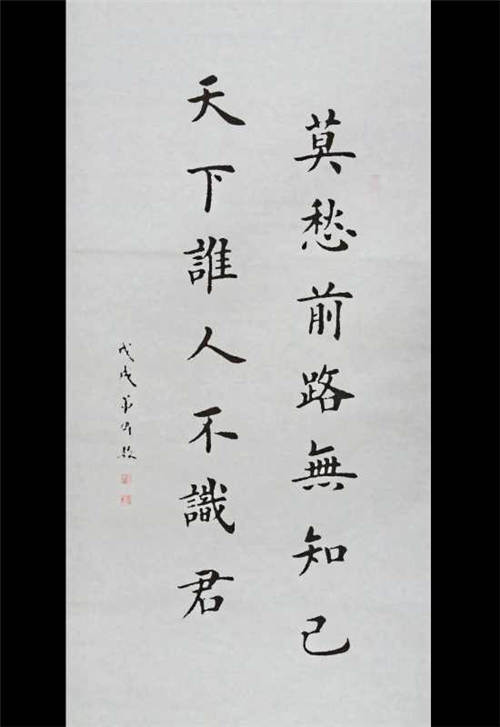 莫愁前路無知己
天下誰人不識君
戊戌